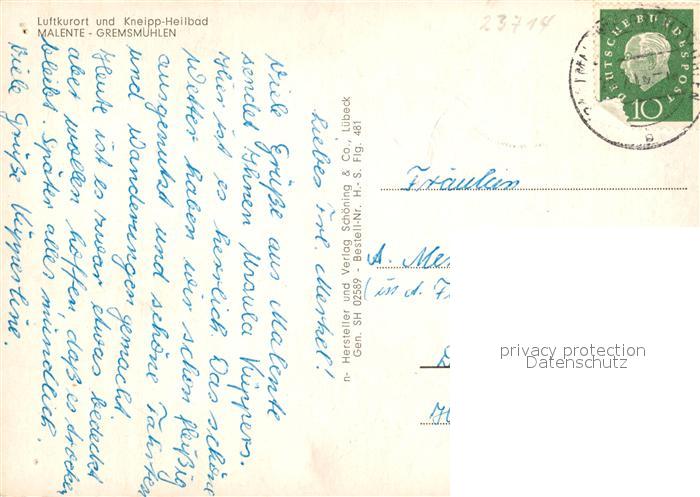 Luftkurort und Kneipp-Heilbad
MALENTE - GREMSMÜHLEN
23714
DEUTSCHE BUNDESPOST
10
Liebes Frl. Merkel!
Viele Grüße aus Malente
sendet Ihnen Ursula Küppers.
Hier ist es herrlich. Das schöne
Wetter haben wir schon fleißig
ausgenutzt und schöne Fahrten
und Wanderungen gemacht.
Heute ist es zwar etwas bedeckt
aber wollen hoffen daß es trocken
bleibt. Später alles mündlich.
Viele Grüße Küpperline.
n- Hersteller und Verlag Schöning & Co., Lübeck
Gen. SH 02589 - Bestell-Nr. H.- S. Flg. 481
Fräulein
A. Me
(in A. F
privacy protection
Datenschutz